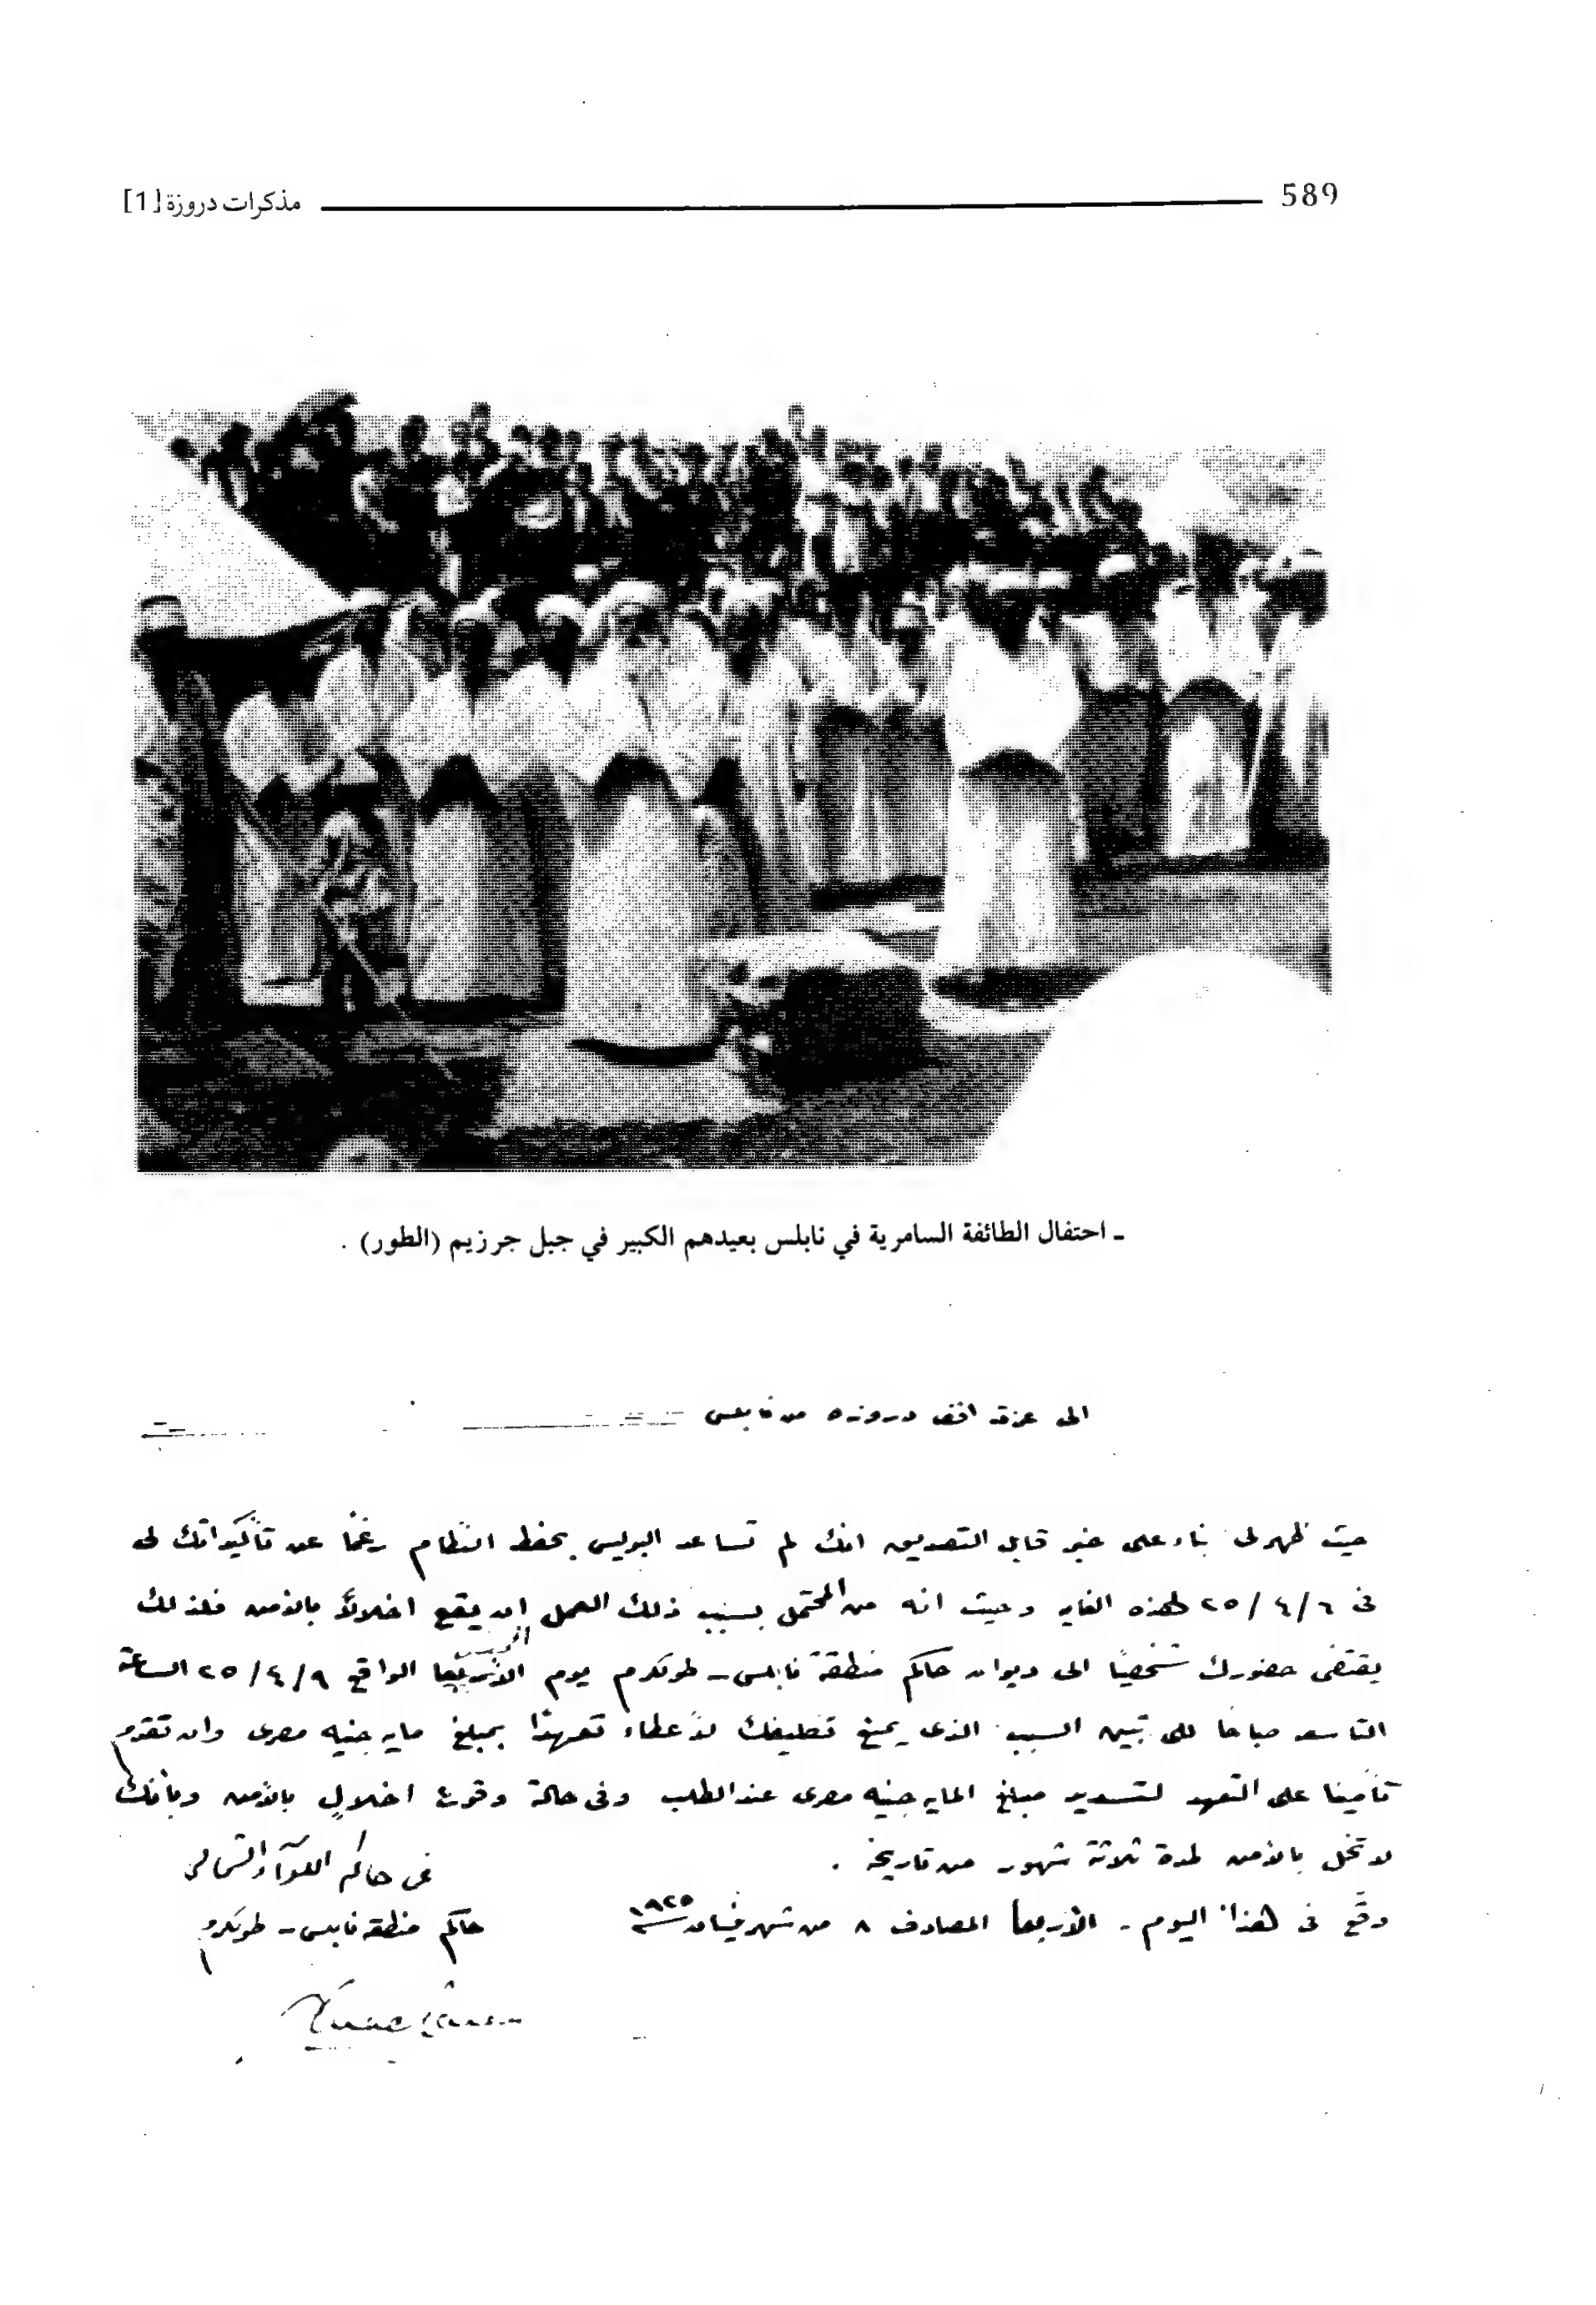 589
مذكرات دروزة [1]
ـ احتفال الطائفة السامرية في نابلس بعيدهم الكبير في جبل جرزيم (الطور) .
الى عزة افندى دروزه من نابلس
حيث ظهر لى بناء على خبر قابل التصديق انك لم تساعد البوليس بحفظ النظام رغمًا عن تأكيداتك لى
فى ٢٥/٤/٦ لهذه الغايه وحيث انه من المحتمل بسبب ذلك العمل ان يقع اخلالًا بالأمن فلذلك
يقتضى حضورك شخصيًا الى ديوان حاكم منطقة نابلس - طولكرم يوم الواقع ٢٥/٤/٩ الساعة
التاسعه صباحًا لكى تبين السبب الذى يمنع تكليفك لأعطاء تعهدًا بمبلغ مايه جنيه مصرى وان تقدم
تأمينا على التعهد لتسديد مبلغ المايه جنيه مصرى عند الطلب وفى حالة وقوع اخلال بالأمن وبأنك
لا تخل بالأمن لمدة ثلاثة شهور من تاريخه .
وقّع فى هذا اليوم - الأربعا المصادف ٨ من شهر نيسان سنة ١٩٢٥
عن حاكم اللواء الشمالى
حاكم منطقة نابلس - طولكرم